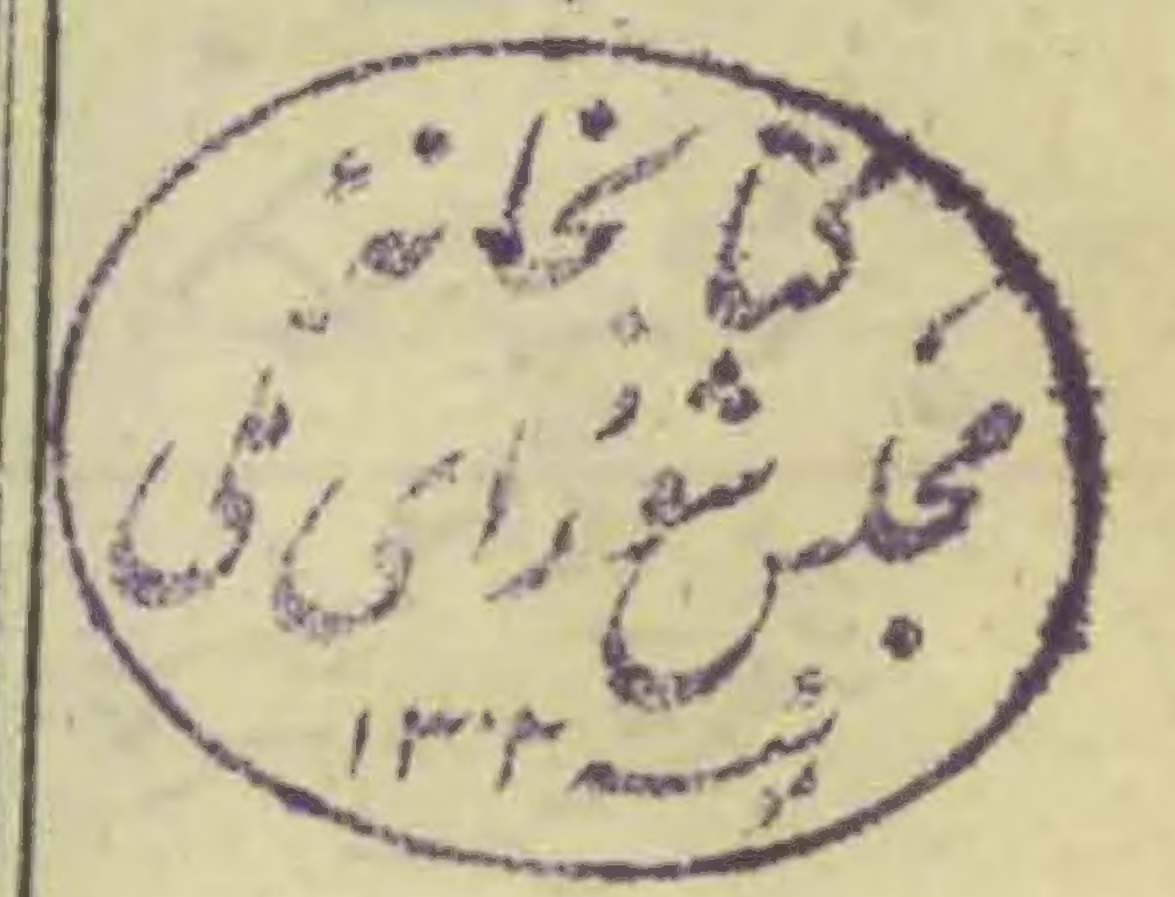 کتابخانهٔ
مجلس شورای ملی
نمرهٔ ۱۳۰۲